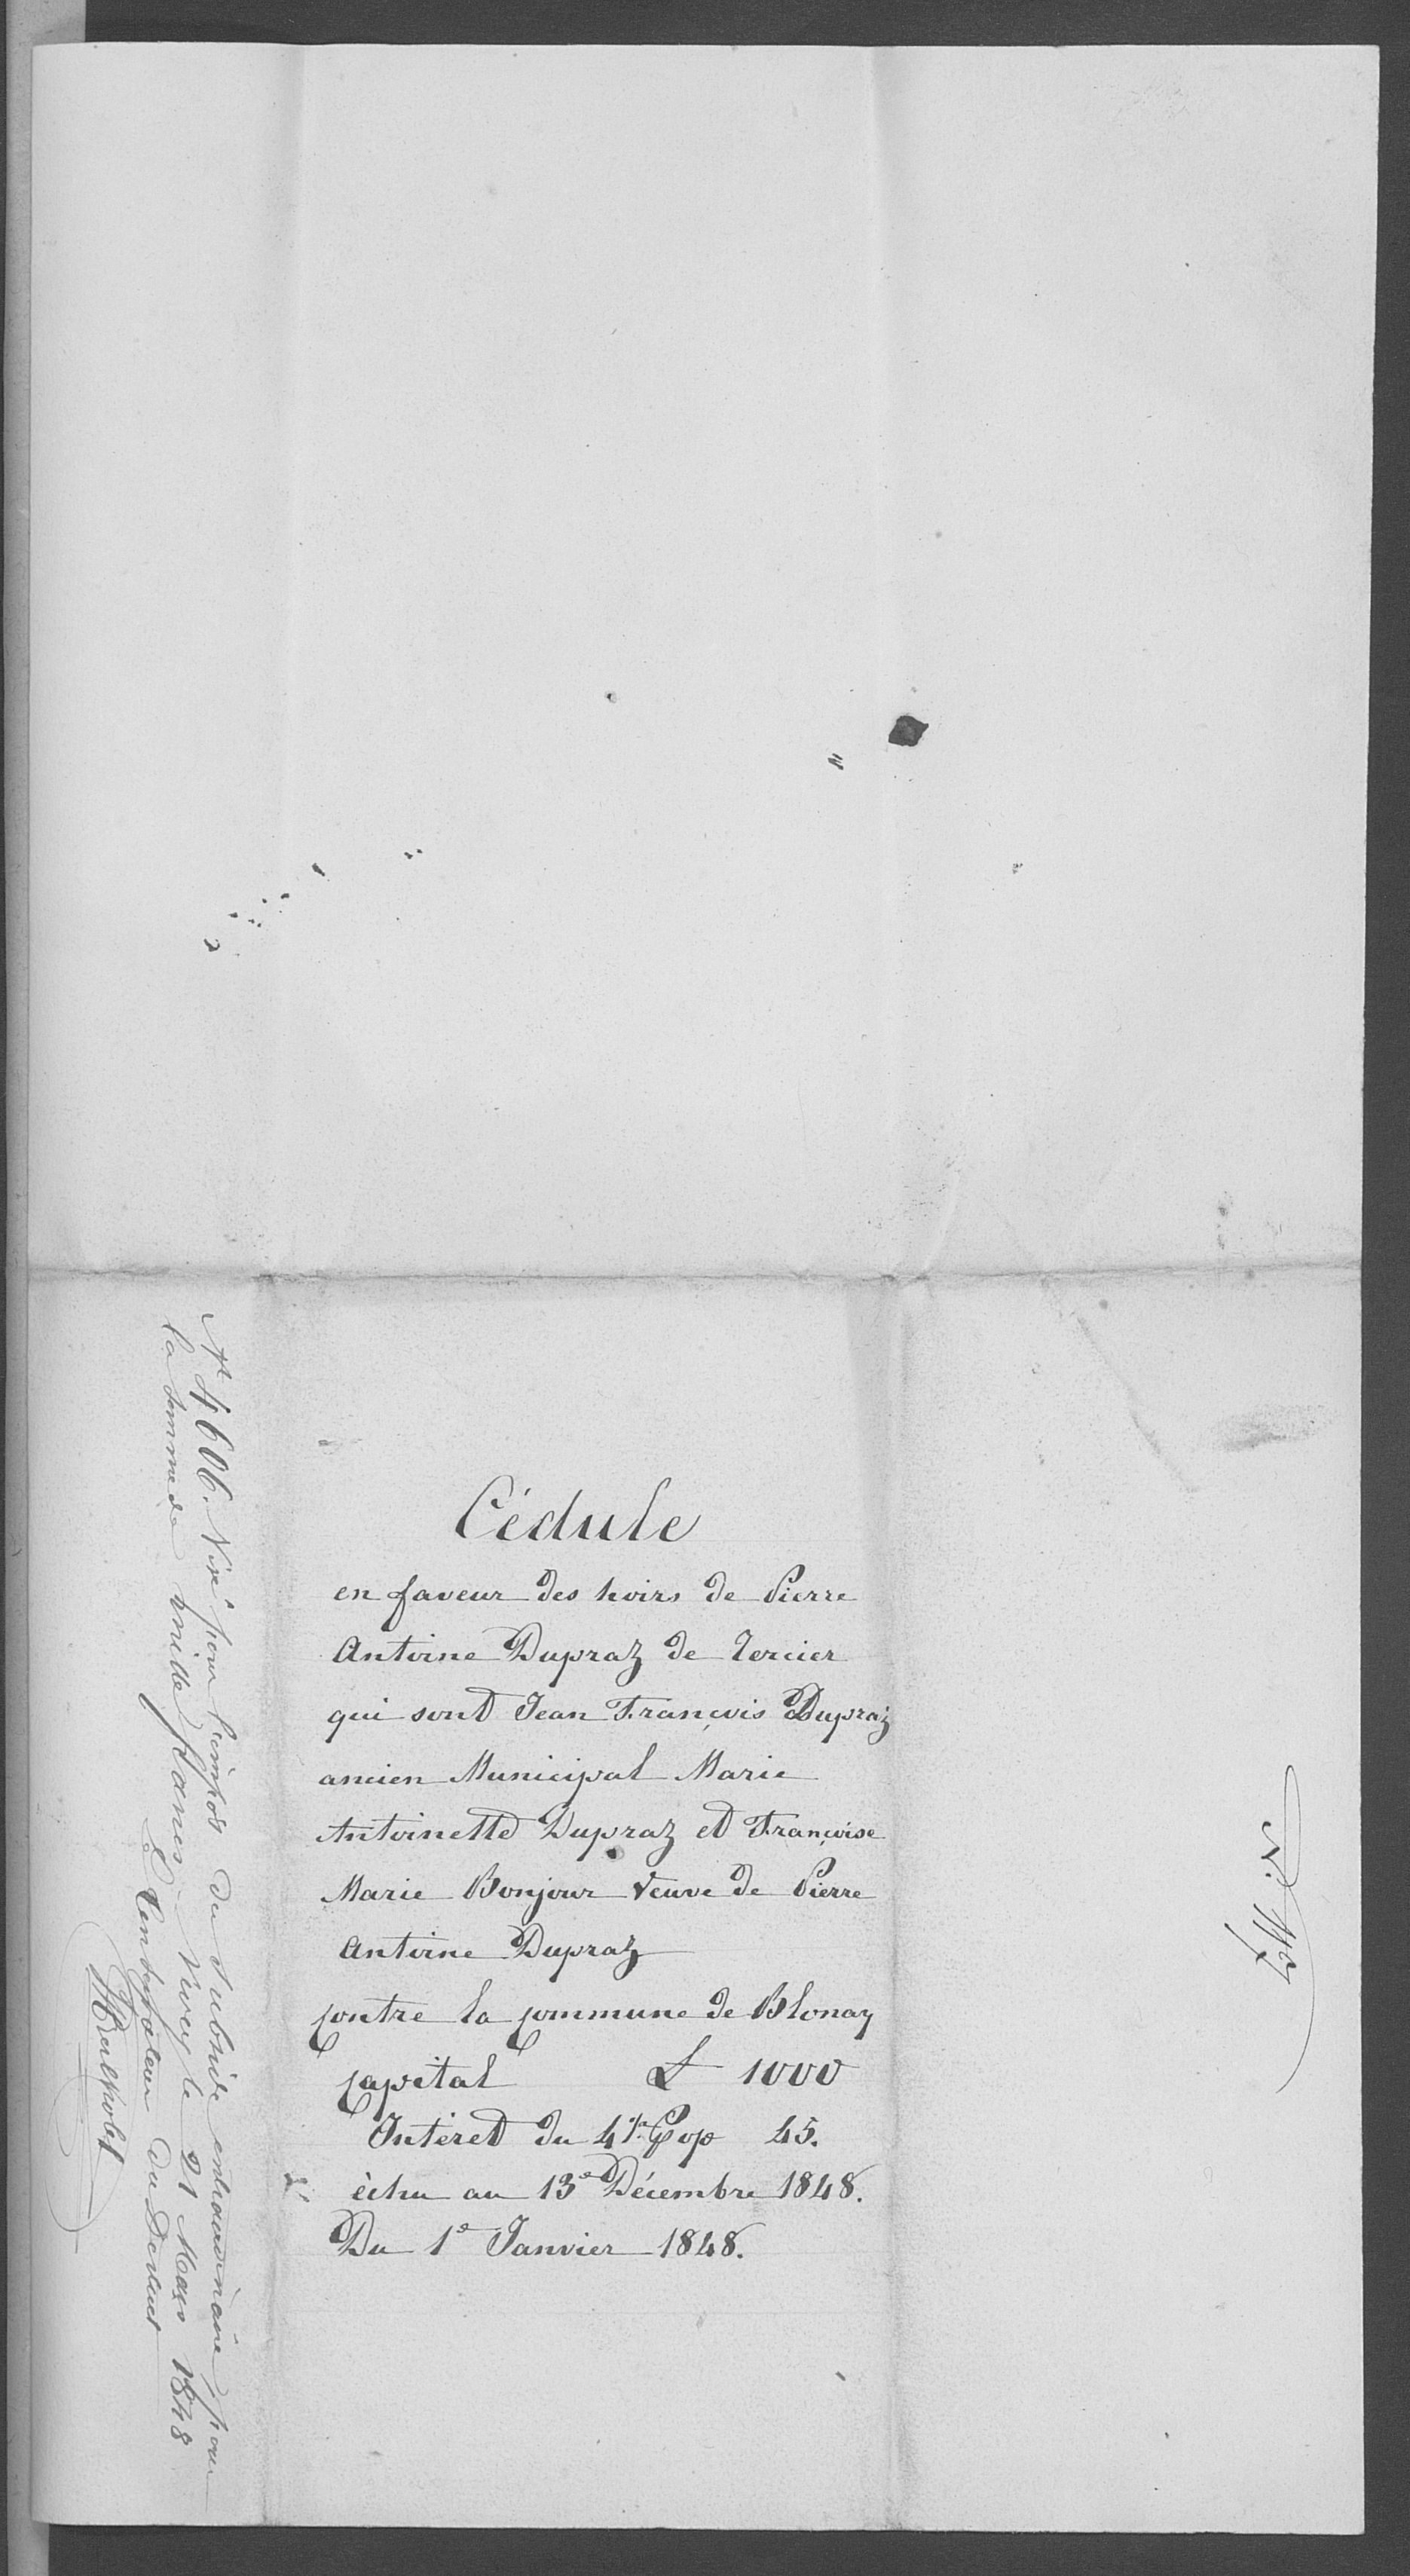 Cédule
en faveur des hoirs de Pierre
Antoine Dupraz de Tercier
qui sont Jean François Dupraz
ancien Municipal Marie
Antoinette Dupraz et Françoise
Marie Bonjour Veuve de Pierre
Antoine Dupraz
contre la commune de Blonay
Capital £ 1000
Intéret du 4½ P % 45.
échu au 13e Décembre 1848.
Du 1e Janvier 1848.
No 4606. Visé pour l'impôt du subside extraordinaire pour
la somme de mille francs. Vevey le 21 Mars 1848
Le Receveur du District
N.